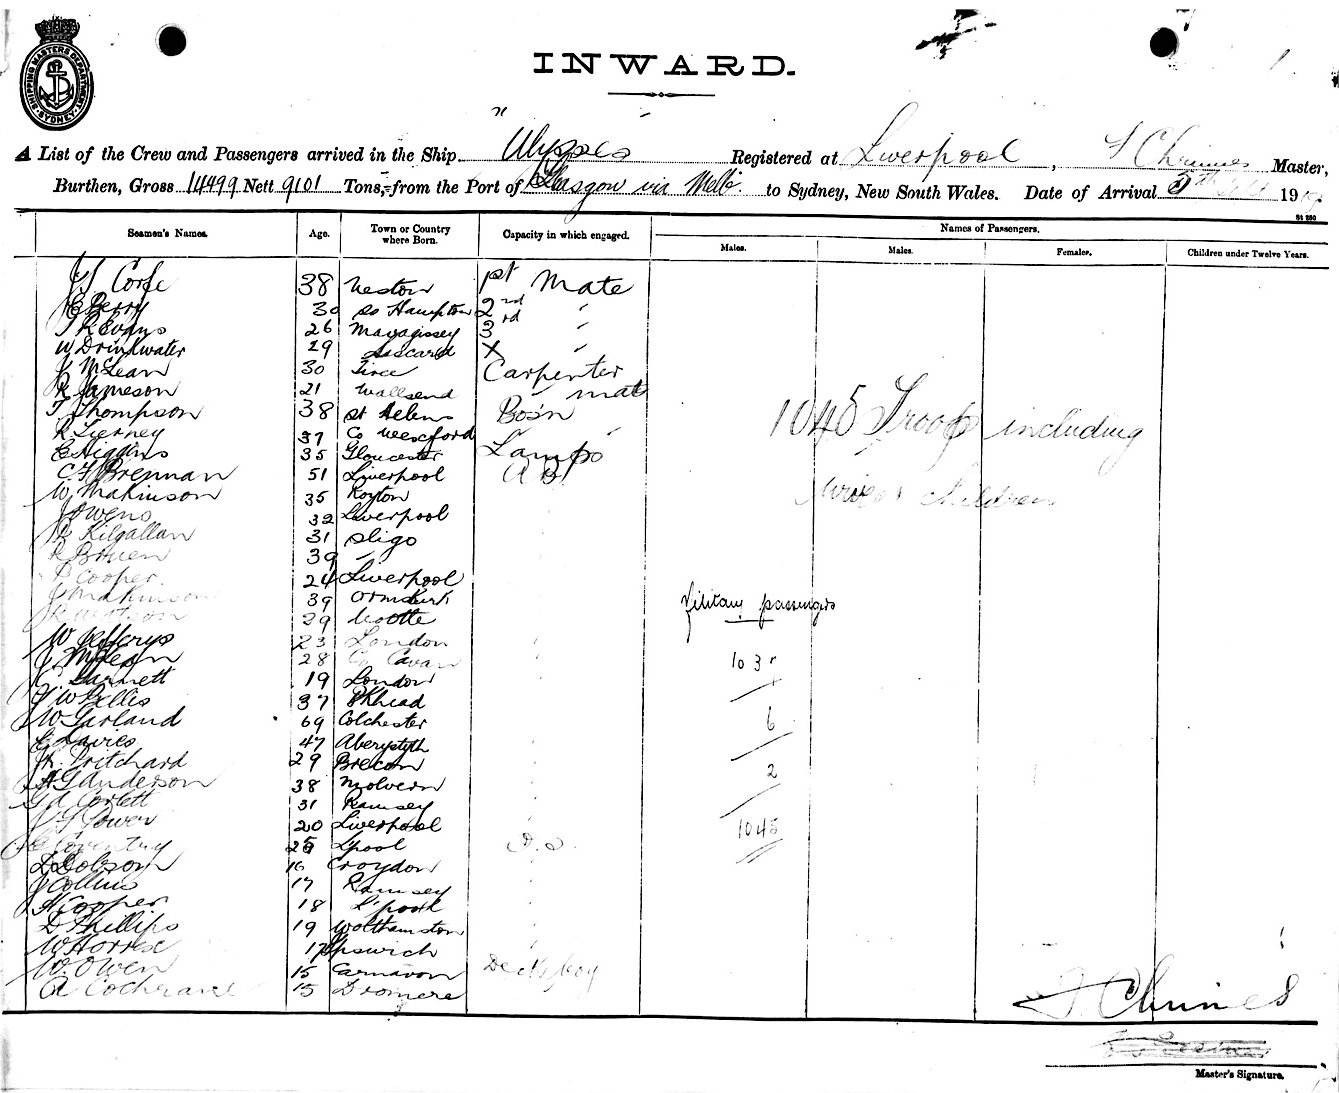 SHIPPING MASTERS DEPARTMENT SYDNEY
INWARD.
A List of the Crew and Passengers arrived in the Ship Ulysses Registered at Liverpool, Chrimes Master,
Burthen, Gross 14499 Nett 9101 Tons, from the Port of Glasgow via Melb. to Sydney, New South Wales. Date of Arrival 5th Sept 19
St 280
Seamen's Names. Age. Town or Country where Born. Capacity in which engaged. Names of Passengers.
Males. Males. Females. Children under Twelve Years.
Corfe 38 Neston 1st Mate
Berry 30 So Hampton 2nd "
T R Evans 26 Mavagissey 3rd "
W Drinkwater 29 Liscard X "
J McLean 30 Tiree Carpenter
R Jameson 21 Wallsend " mate
T Thompson 38 St Helens Bos'n
R Tierney 37 Co Wexford "
E Higgins 35 Gloucester Lamps
C F Brennan 51 Liverpool A B
W Makinson 35 Royton
J Owens 32 Liverpool
Kilgallan 31 Sligo
R Bruen 39 "
P Cooper 24 Liverpool
J Makinson 39 Ormskirk
R Watson 29 Bootle
W Jefferys 23 London
J McLean 28 Co Cavan
Garnett 19 London
W Gillis 37 BKhead
W Garland 69 Colchester
E Davies 47 Aberystyth
Pritchard 29 Brecon
A G Anderson 38 Molvern
G A Corlett 31 Ramsey
Gower 20 Liverpool
E Coventry Lpool O.S.
Dobson 16 Croydon
J Collins 17 Ramsey
H Cooper 18 L'pool
D Phillips 19 Wolthamston
W Horrex 17 Ipswich
W. Owen 15 Carnavon Deck boy
A Cochrane 15 Dromere
1045 Troops including
wives & children
Military passengers
103
6
2
1045
Chrimes
Master's Signature.